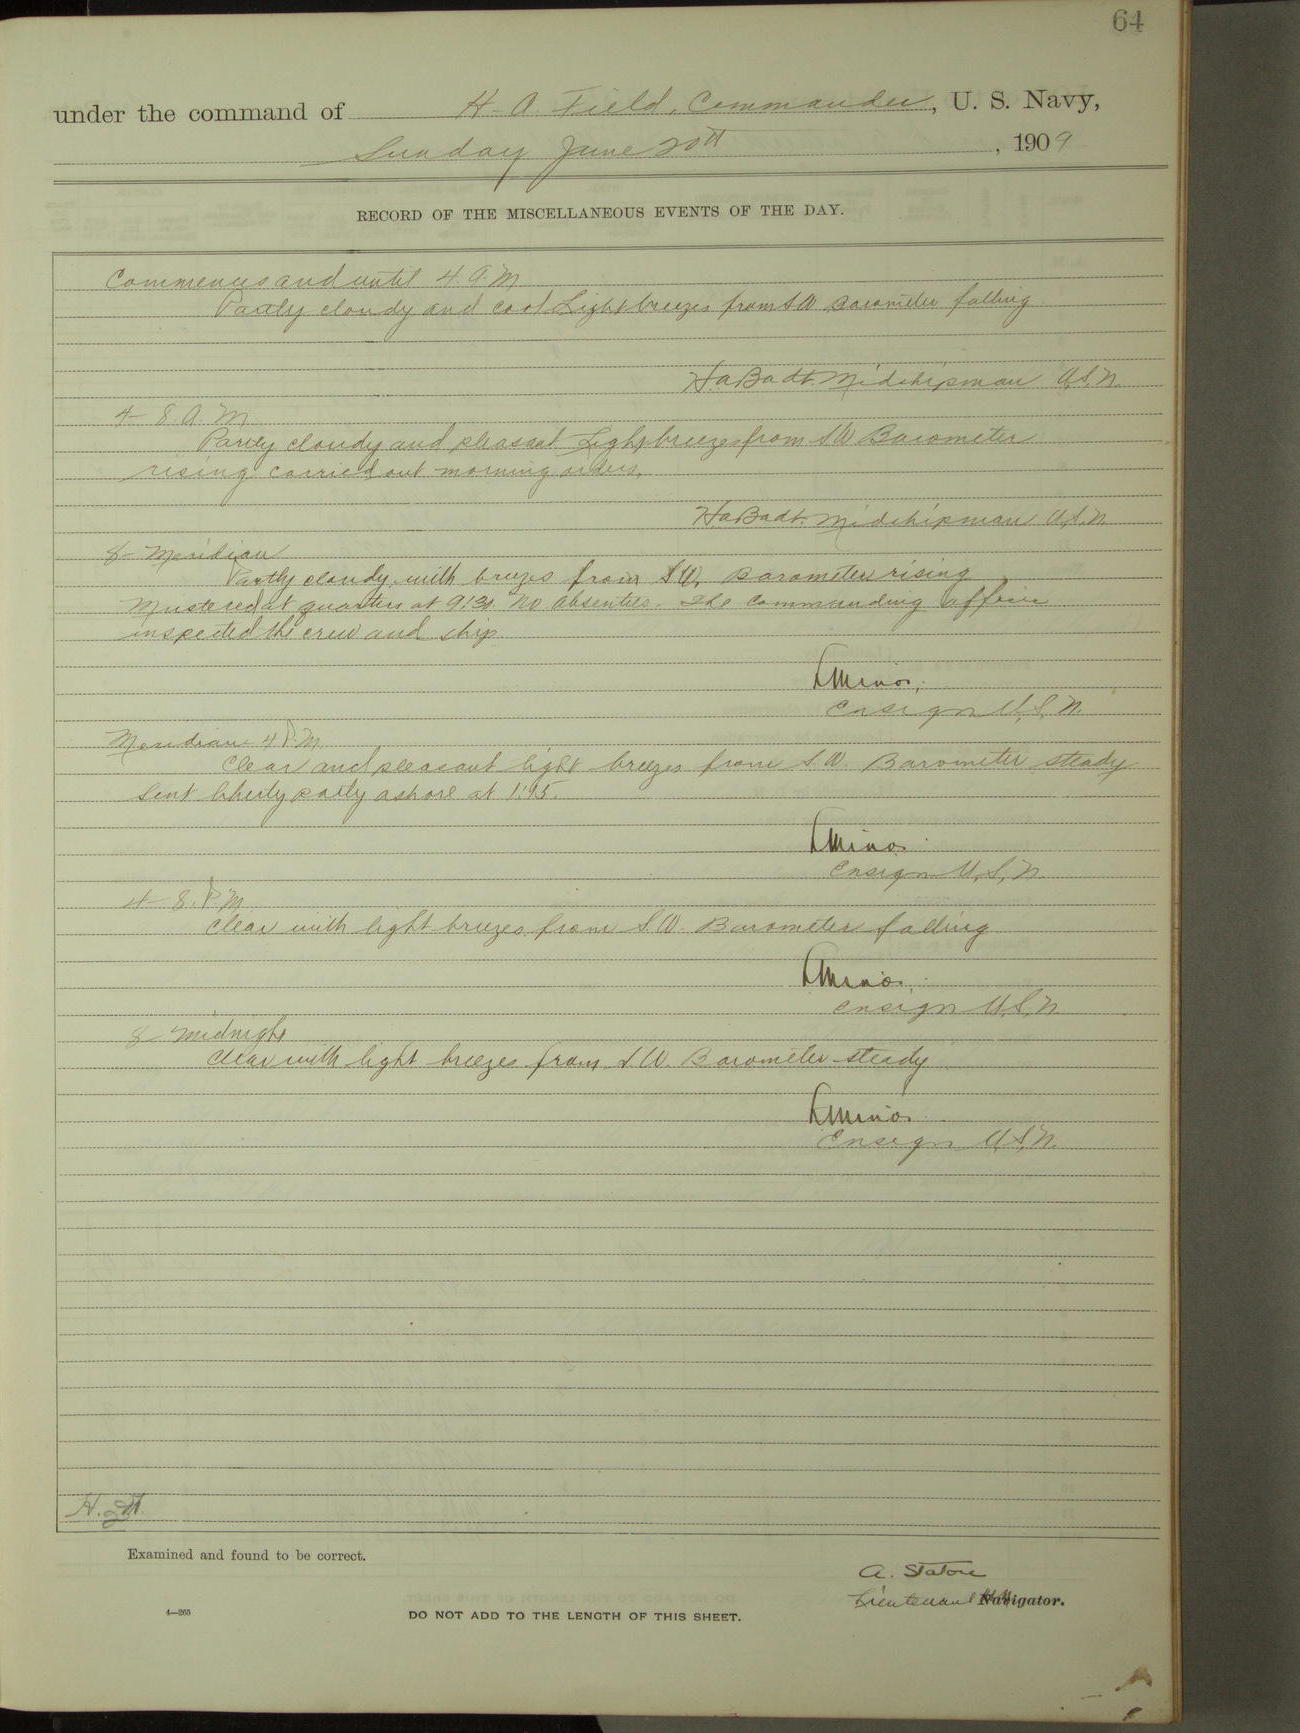 64
under the command of H. A. Field, Commander, U. S. Navy,
Sunday June 20th, 1909
RECORD OF THE MISCELLANEOUS EVENTS OF THE DAY.
Commences and until 4 A.M
Partly cloudy and cool Light breezes from SW Barometer falling
Ha Badt. Midshipman U.S.N.
4- 8. A. M
Partly cloudy and pleasant Light breezes from SW Barometer
rising carried out morning orders.
Ha Badt. Midshipman U.S.N
8- Meridian
Partly cloudy, with breezes from SW, Barometer rising
Mustered at quarters at 9:30. No absentees. The commanding officer
inspected the crew and ship
Ensign U.S.N.
Meridian 4 P.M.
Clear and pleasant light breezes from S.W. Barometer steady
Sent liberty party ashore at 1:15.
Ensign U,S,N.
4- 8. P M
Clear with light breezes from S.W. Barometer falling
Ensign U.S.N
8- Midnight
Clear with light breezes from S.W. Barometer steady
Ensign U.S.N.
Examined and found to be correct.
A. Staton
Lieutenant Navigator.
4—265
DO NOT ADD TO THE LENGTH OF THIS SHEET.